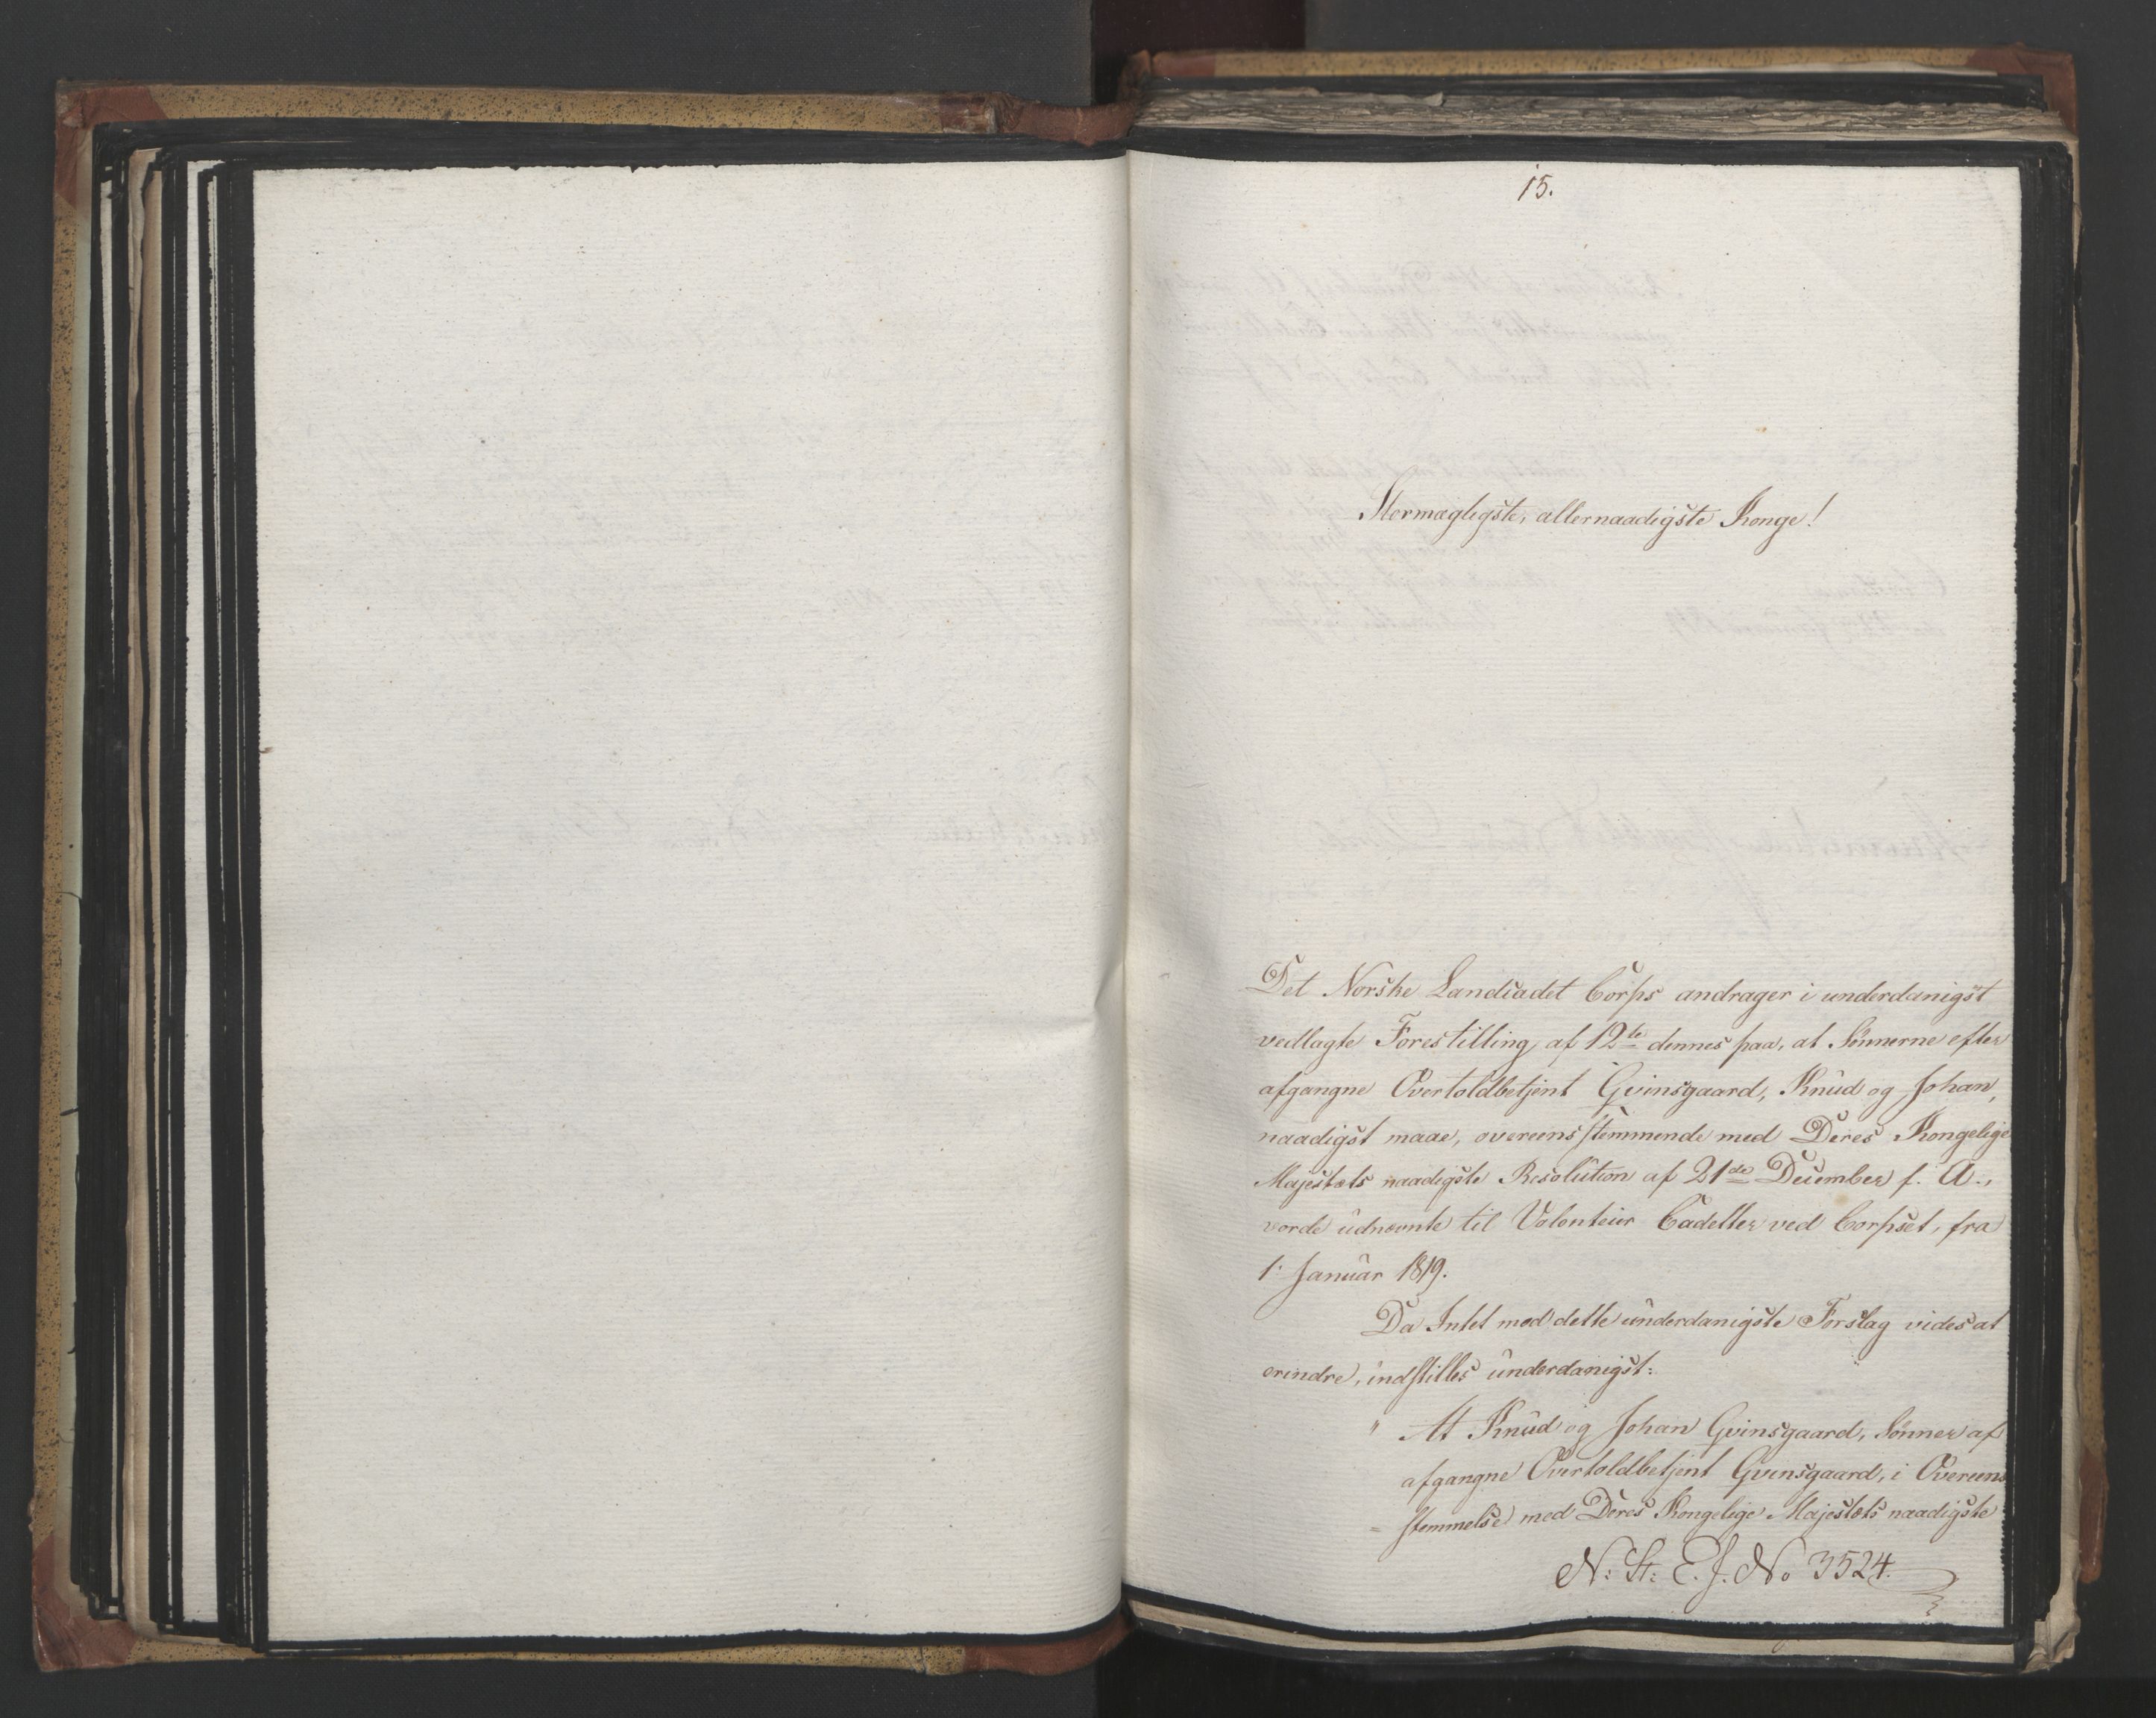 15.
Stormægtigste, allernaadigste Konge!
Det Norske Landcadet Corps andrager i underdanigst
vedlagte Forestilling af 12te dennes paa, at Sønnerne efter
afgangne Overtoldbetjent Gvinsgaard, Knud og Johan,
naadigst maae, overeensstemmende med Deres Kongelige
Majestæts naadigste Resolution af 21de December f. A.,
vorde udnævnte til Volonteur Cadetter ved Corpset, fra
1. Januar 1819.
Da Intet mod dette underdanigste Forslag vides at
erindre, indstilles underdanigst:
" At Knud og Johan Gvinsgaard, Sønner af
afgangne Overtoldbetjent Gvinsgaard, i Overeens
= stemmelse med Deres Kongelige Majestæts naadigste
N: St: E. J. No 3524.